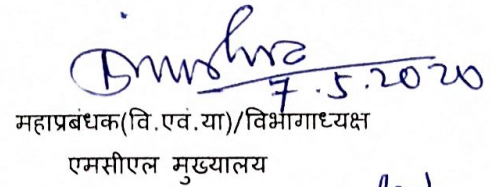 7.5.2020
महाप्रबंधक(वि.एवं.या)/विभागाध्यक्ष
एमसीएल मुख्यालय